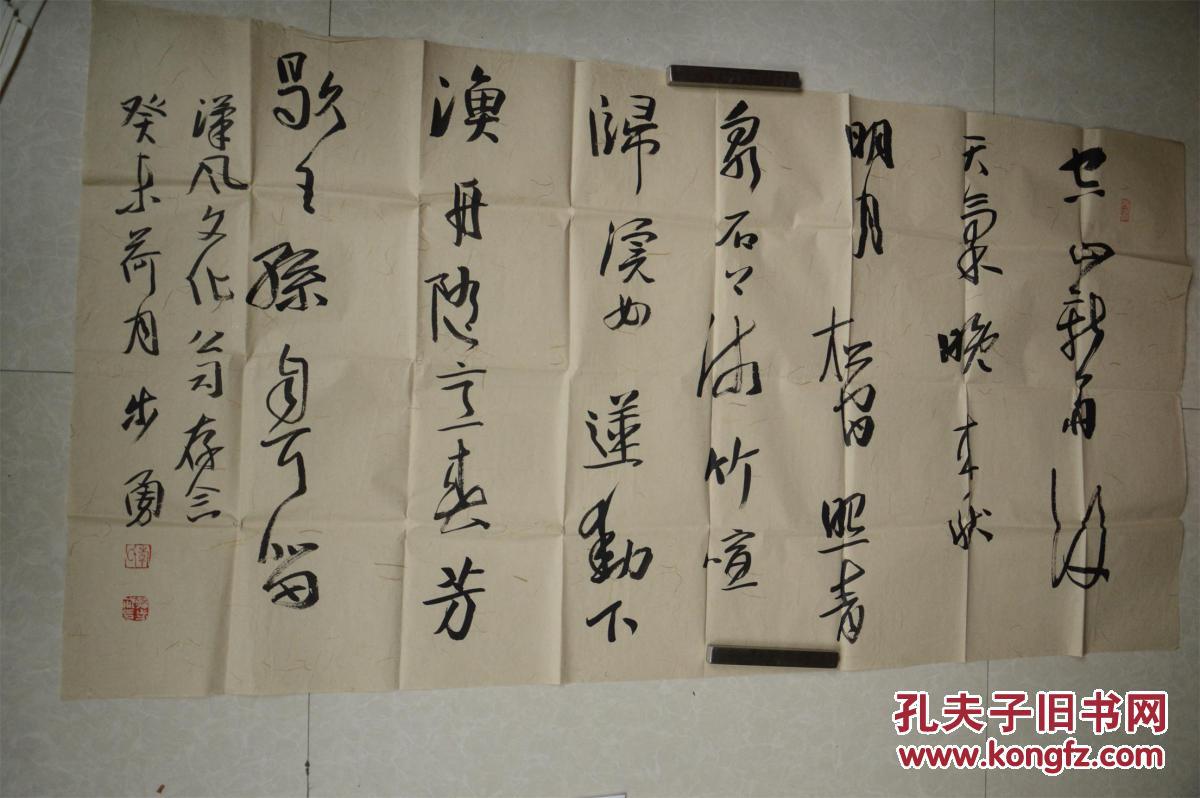 空山新雨後
天氣晚来秋
明月松間照青
泉石上流竹喧
歸浣女蓮動下
漁舟随意春芳
歇王孫自可留
漢风文化公司存念
癸未荷月步勇
孔夫子旧书网
www.kongfz.com